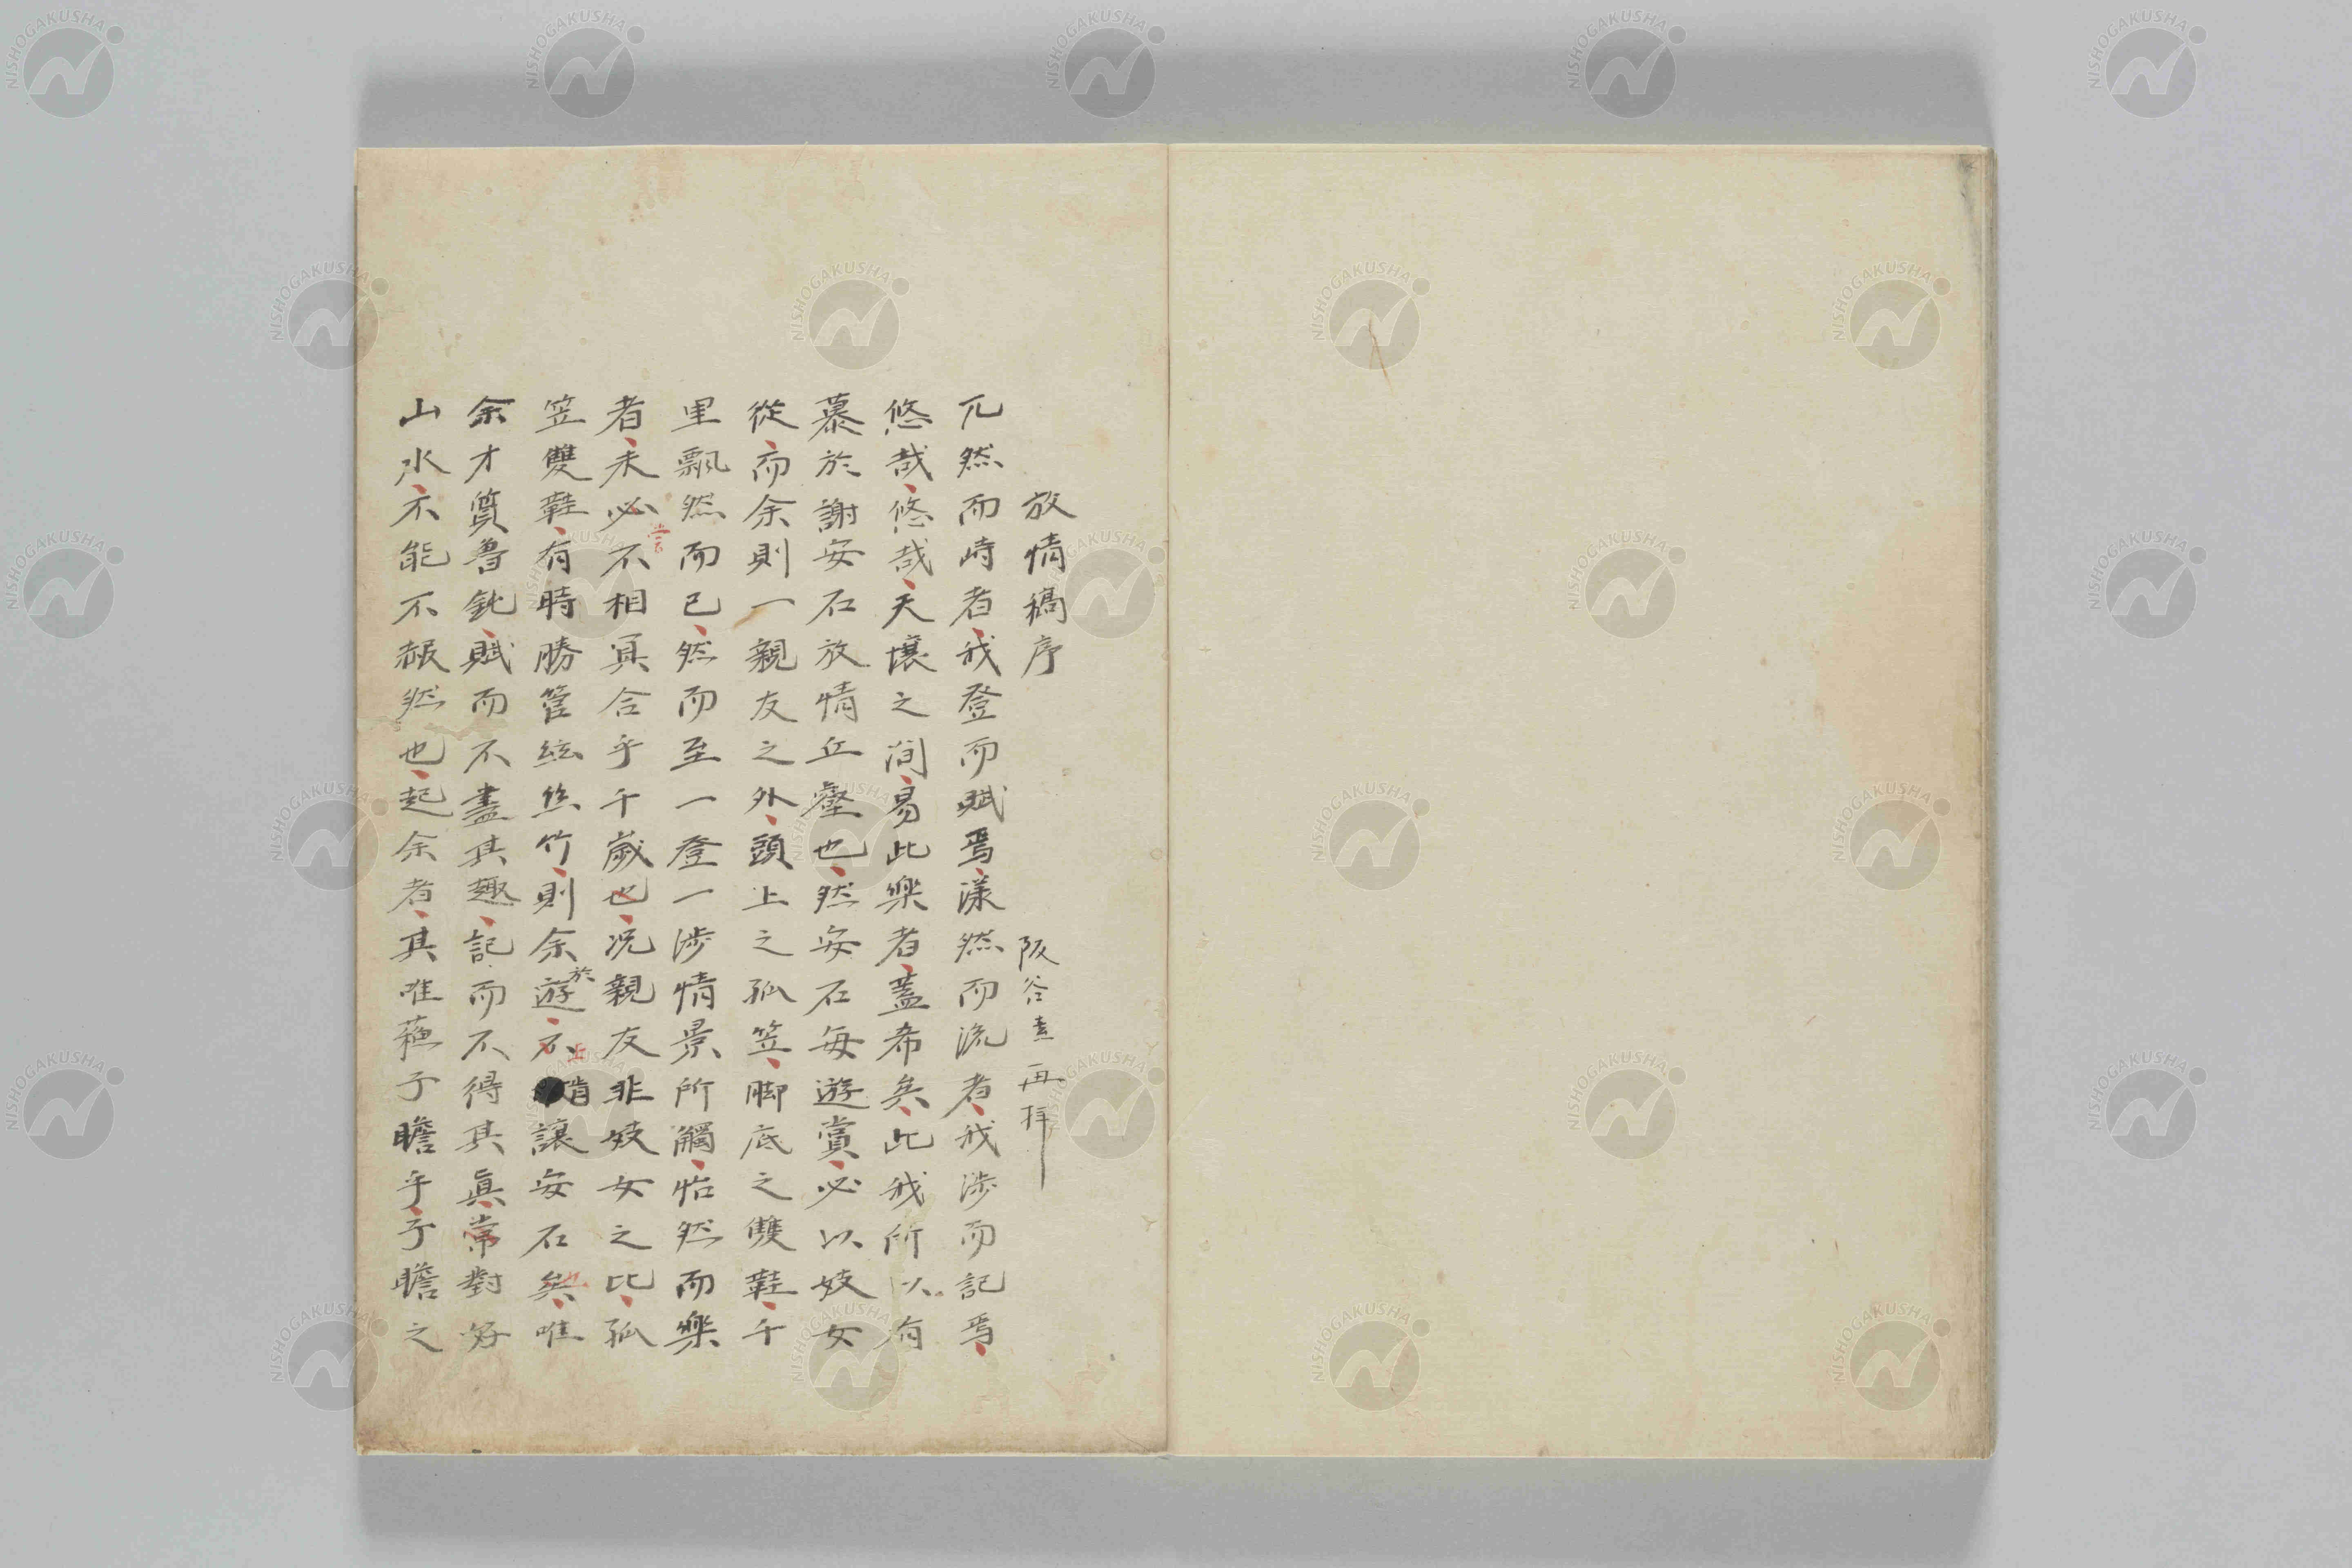 放情稿序　阪谷素再拜
兀然而峙者我登而賦焉漾然而流者我渉而記焉
悠哉悠哉天壤之間易此樂者蓋希矣此我所以有
慕於謝安石放情丘壑也然安石每遊賞必以妓女
從而余則一親友之外頭上之孤笠脚底之雙鞋千
里飄然而已然而至一登一渉情景所觸怡然而樂
者未必不相冥合乎千歲也况親友非妓女之比孤
笠雙鞋有時勝管絃絲竹則余遊於不肯讓安石矣唯
余才質魯鈍賦而不盡其趣記而不得其眞常對好
山水不能不赧然也起余者其唯蘓子瞻乎子瞻之
NISHOGAKUSHA